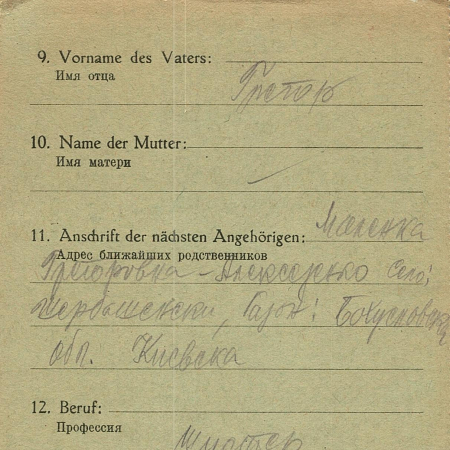 9. Vorname des Vaters:
Имя отца
Грегор
10. Name der Mutter:
Имя матери
11. Anschrift der nächsten Angehörigen:
Адрес ближайших родственников
Грегоровка - Алексеенко Село:
Район:
обл. Киевска
12. Beruf:
Профессия